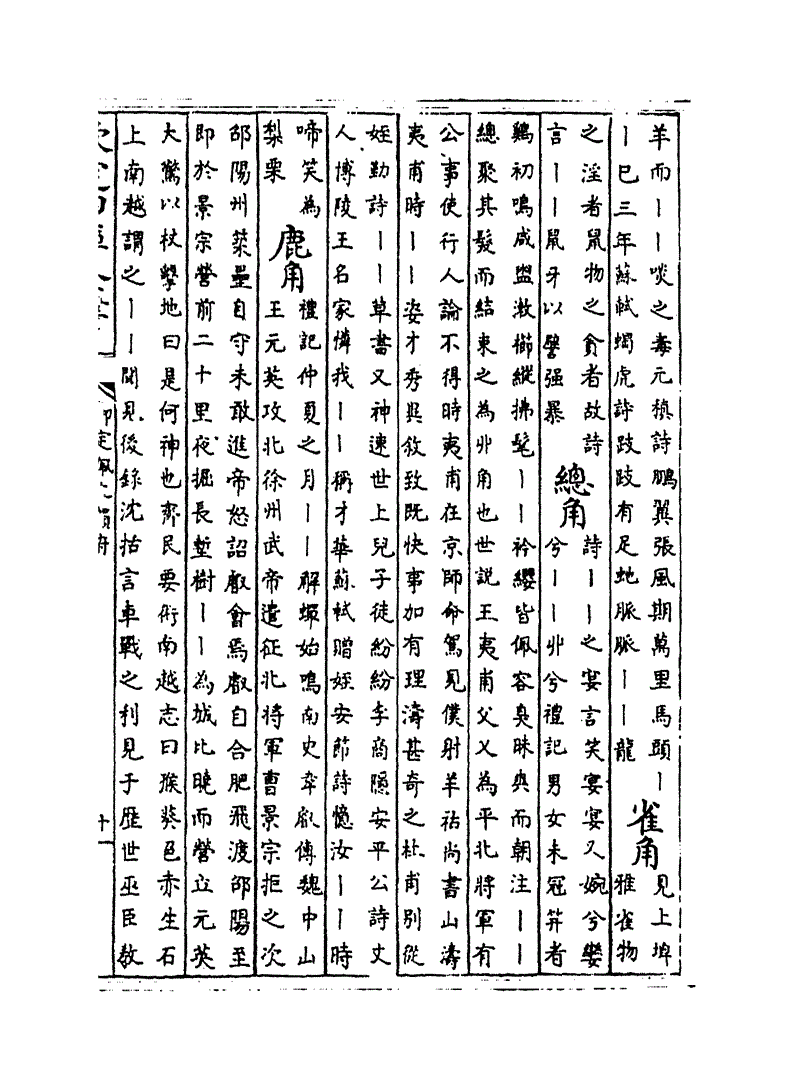 羊而丨丨啖之毒元稹詩鵬翼張風期萬里馬頭丨
丨巳三年蘇軾蝎虎詩跂跂有足蛇脈脈丨丨龍
雀角
見上埤
雅雀物
之淫者鼠物之貪者故詩
言丨丨鼠牙以譬强暴
總角
詩丨丨之宴言笑宴宴又婉兮孌
兮丨丨丱兮禮記男女未冠笄者
鷄初鳴咸盥漱櫛縰拂髦丨丨衿纓皆佩容臭昧爽而朝注丨丨
總聚其髮而結束之為丱角也世說王夷甫父乂為平北將軍有
公事使行人論不得時夷甫在京師命駕見僕射羊祜尚書山濤
夷甫時丨丨姿才秀異敘致既快事加有理濤甚奇之杜甫別從
姪勤詩丨丨草書又神速世上兒子徒紛紛李商隱安平公詩丈
人博陵王名家憐我丨丨稱才華蘇軾贈姪安節詩憶汝丨丨時
啼笑為
梨栗
鹿角
禮記仲夏之月丨丨解蟬始鳴南史韋叡傳魏中山
王元英攻北徐州武帝遣征北將軍曹景宗拒之次
邵陽州築壘自守未敢進帝怒詔叡會焉叡自合肥飛渡邵陽至
即於景宗營前二十里夜掘長塹樹丨丨為城比曉而營立元英
大驚以杖擊地曰是何神也齊民要術南越志曰猴葵色赤生石
上南越謂之丨丨聞見後錄沈括言車戰之利見于歷世巫臣教
欽定四庫全書
御定佩文韻府
十一